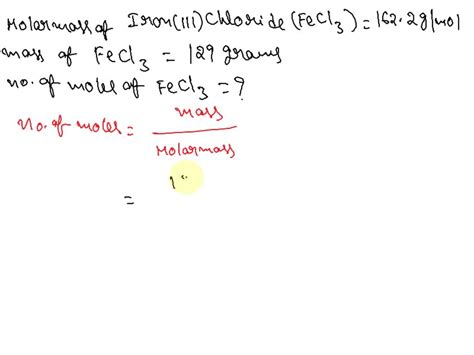 Molarmass of Iron(III)Chloride (FeCl3) = 162.2g/mol
mass of FeCl3 = 129 grams
no. of moles of FeCl3 = ?
no. of moles = mass
Molarmass
=